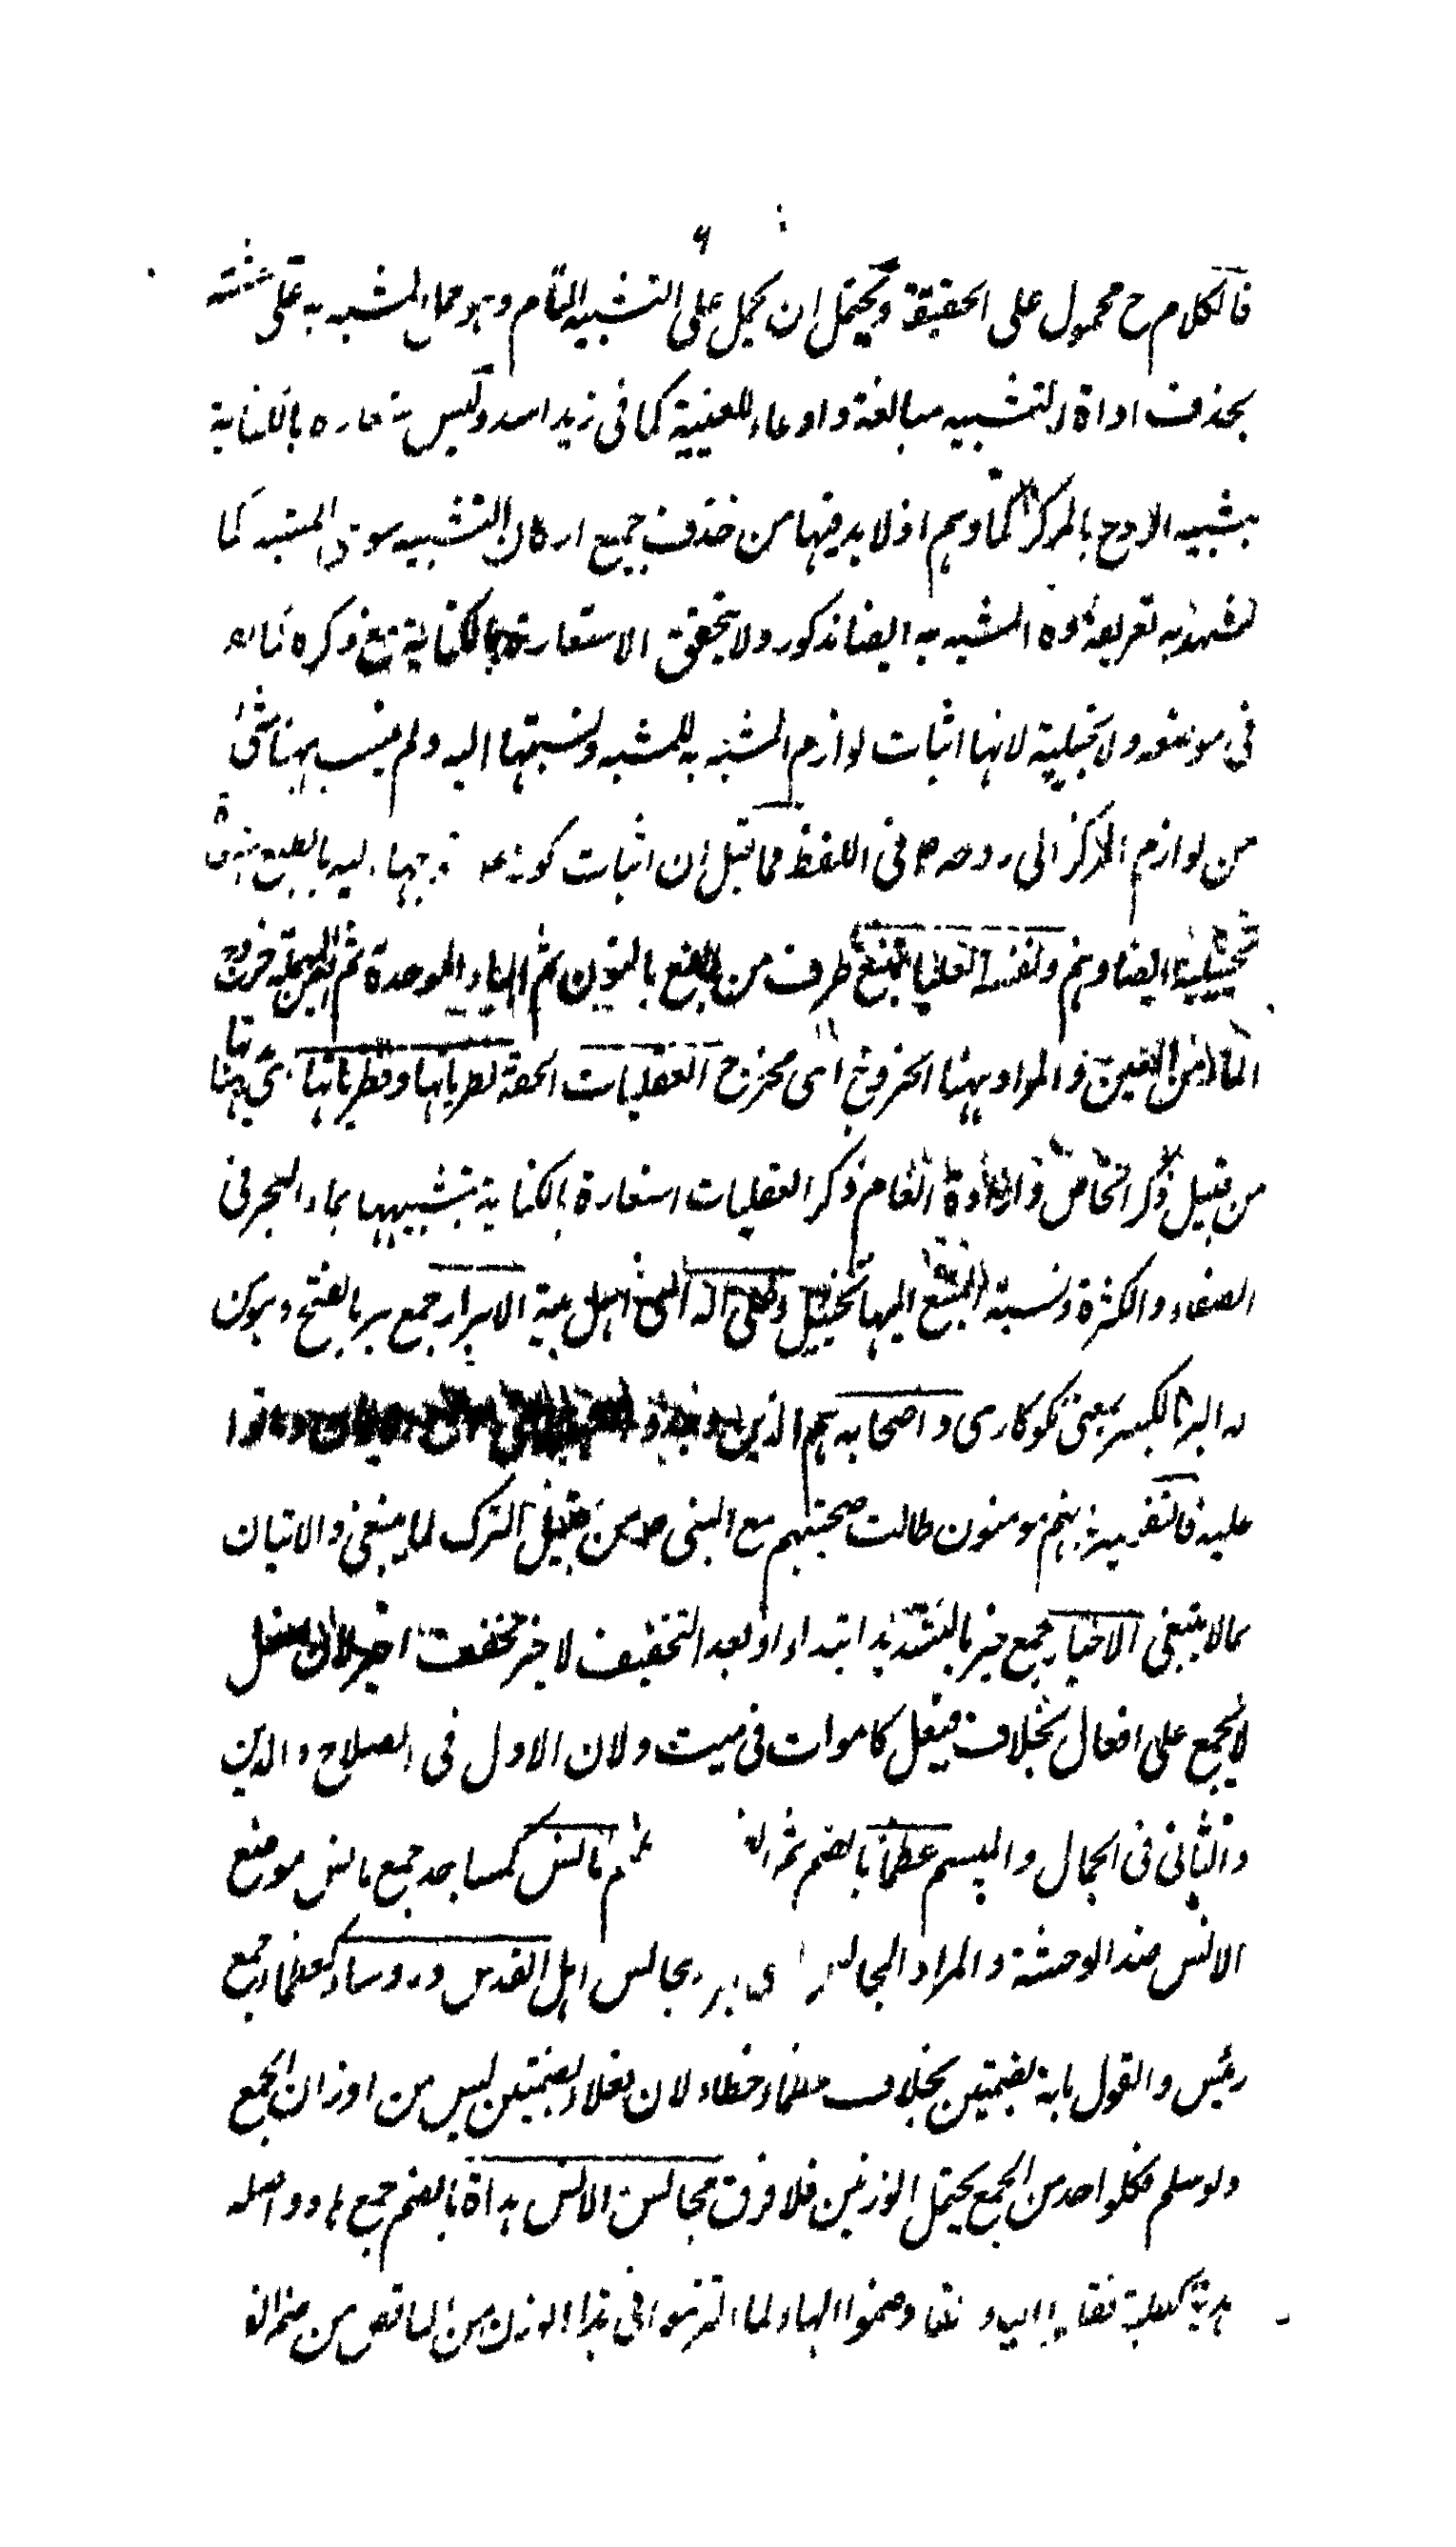 ٦
فالكلام ح محمول على الحقيقة ويحتمل ان يحمل على التشبيه التام وهو حمل المشبه به على
بحذف اداة التشبيه مبالغة وادعاء للعينية كما فى زيد اسد وليس استعاره بالكناية
بتشبيه الروح بالمركز كما وهم اذ لا بد فيها من حذف جميع اركان التشبيه سوى المشبه كما
تعريفه المشبه به ايضا مذكور ولا يتحقق الاستعارة بالكناية مع ذكره
فى موضعه ولا تخييلية لانها اثبات لوازم المشبه به للمشبه ونسبتها اليه ولم ينسب ههنا شئ
من لوازم المركز الى روحه ص فى اللفظ فما قيل ان اثبات اليه بالطبع
تخييلية ايضا وهم ونفسه العليا منبع ظرف من النبع بالنون ثم الباء الموحدة ثم العين المهملة خروج
الماء من العين والمراد ههنا الخروج اى مخرج العقليات الحقة نظرياتها وفطرياتها
من قبيل ذكر الخاص وارادة العام وذكر العقليات استعارة بالكناية بتشبيهها بماء البحر فى
الصفاء والكثرة ونسبة المنبع اليها تخييل وعلى اله اى اهل بيته الابرار جمع بر بالفتح
له البر بالكسر بمعنى نكوكارى واصحابه هم الذين
عليه مومنون طالت صحبتهم مع النبى ص من قبيل الترك لما ينبغى والاتيان
بمالا ينبغى الاخيار جمع خير بالتشديد ابتداء او بعد التخفيف لا خير مخفف اخير لان
لا يجمع على افعال بخلاف فيعل كاموات فى ميت ولان الاول فى الصلاح والدين
والثانى فى الجمال والميسم عظماء بالضم ثم كمساجد جمع مانس موضع
الانس ضد الوحشة والمراد مجالس اهل القدس ورؤساء كعظماء جمع
رئيس والقول بانه بضمتين بخلاف عظماء خطاء لان فعلاء بضمتين ليس من اوزان الجمع
ولو سلم فكلواحد من الجمع يحتمل الوزنين فلا فرق مجالس الانس هداة بالضم جمع هاد واصله
هدية الياء وضموا الهاء لما التزموا فى هذا الوزن من الناقص من ضم الفا